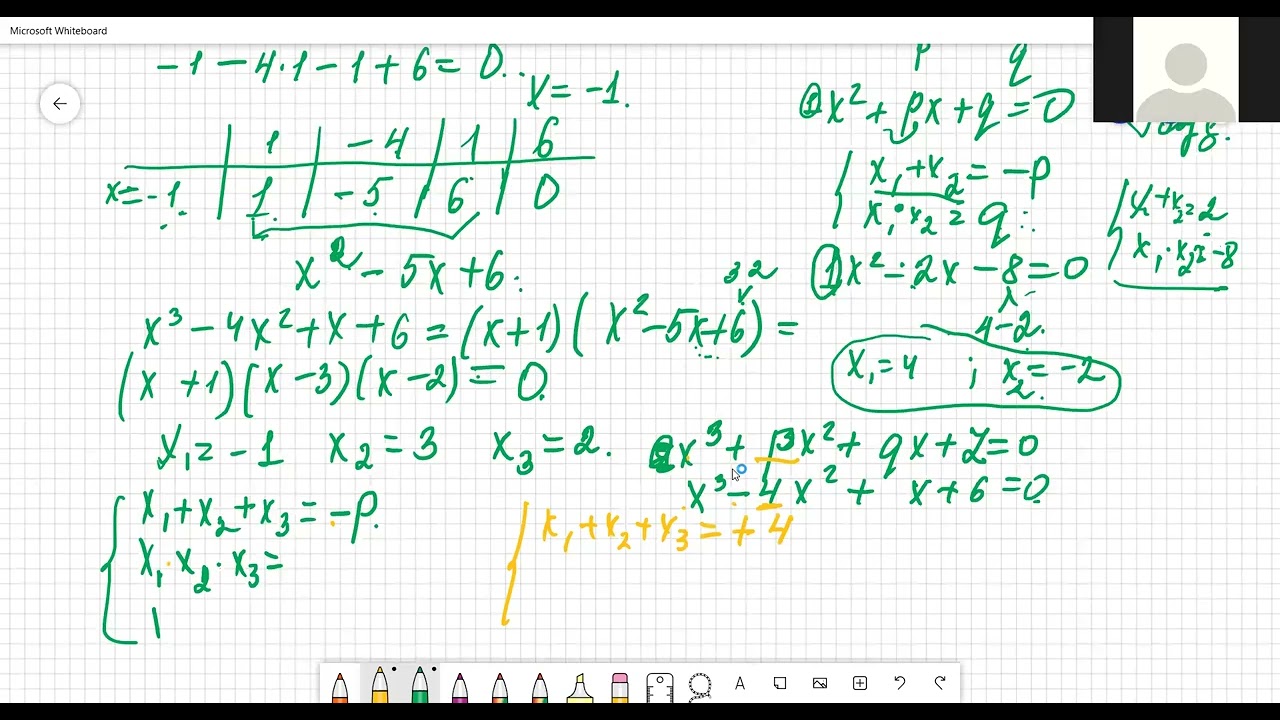 Microsoft Whiteboard
-1 - 4·1 - 1 + 6 = 0..
x = -1.
1 | -4 | 1 | 6
x = -1 | 1 | -5 | 6 | 0
x² - 5x + 6.
3 2
x³ - 4x² + x + 6 = (x+1)(x² - 5x + 6) =
(x + 1)(x - 3)(x - 2) = 0.
x₁ = -1 x₂ = 3 x₃ = 2.
x₁ + x₂ + x₃ = -p.
x₁ · x₂ · x₃ =
p q
① x² + px + q = 0
x₁ + x₂ = -p
x₁ · x₂ = q
x₁ + x₂ = 2
x₁ · x₂ = -8
① x² - 2x - 8 = 0
4 -2.
x₁ = 4 ; x₂ = -2
x³ + px² + qx + z = 0
x³ - 4x² + x + 6 = 0
x₁ + x₂ + x₃ = + 4
A